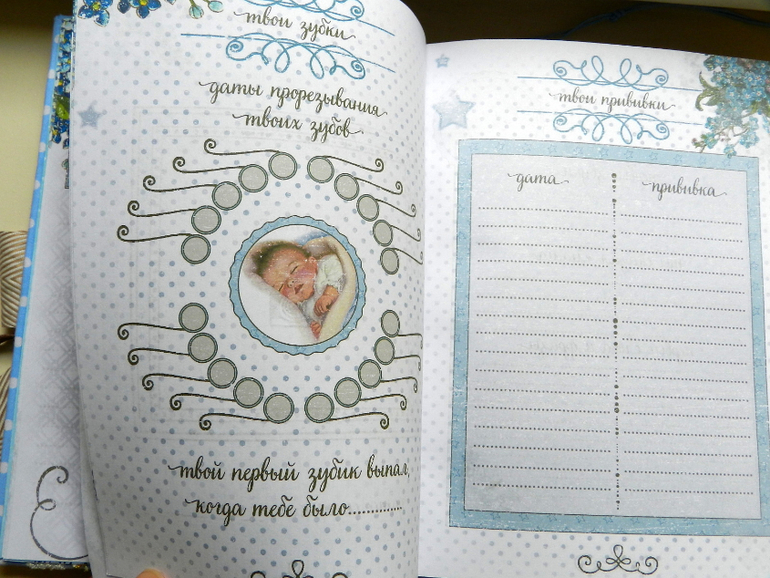 твои зубки
даты прорезывания
твоих зубов
твой первый зубик выпал,
когда тебе было.............
твои прививки
дата
прививка